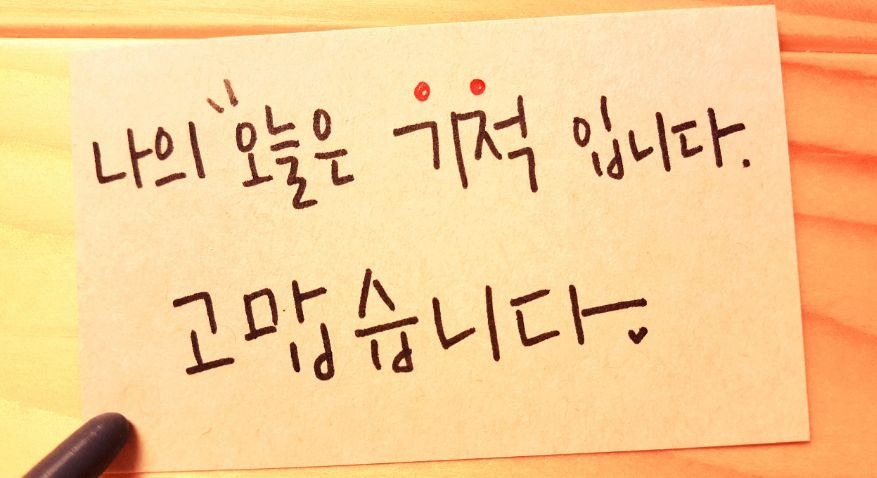 나의 오늘은 기적 입니다.
고맙습니다